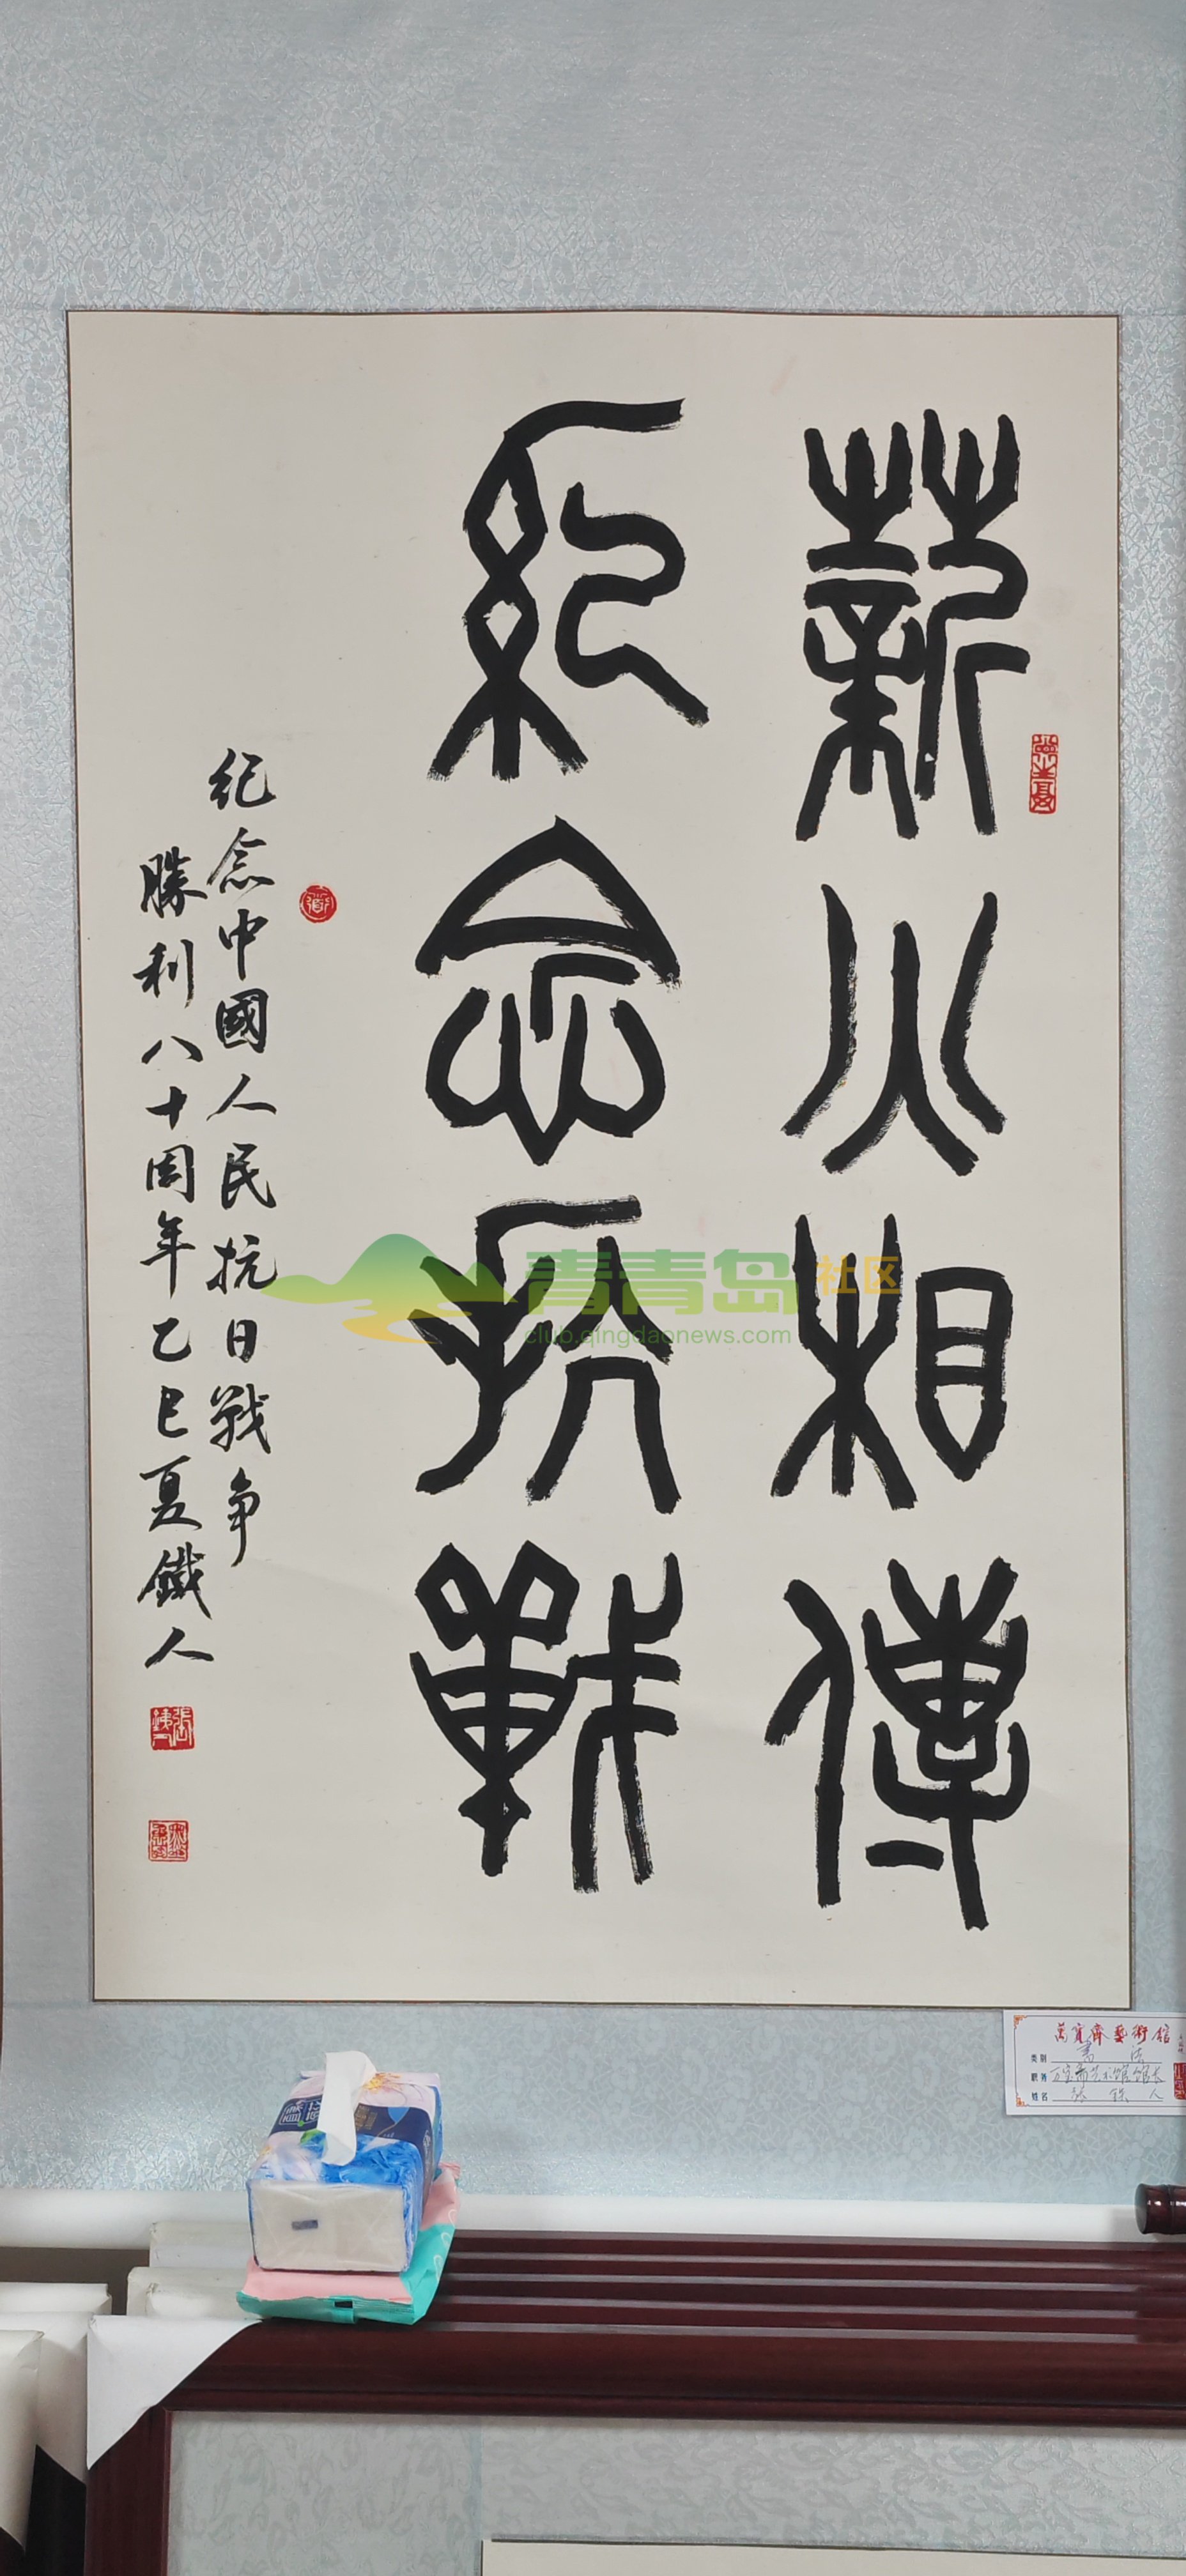 薪火相傳
紀念抗戰
纪念中國人民抗日戰争
勝利八十周年乙巳夏鐵人
青青岛社区
club.qingdaonews.com
萬寶齋藝術館
类别 書法
职务 万宝斋艺术馆馆长
姓名 张铁人